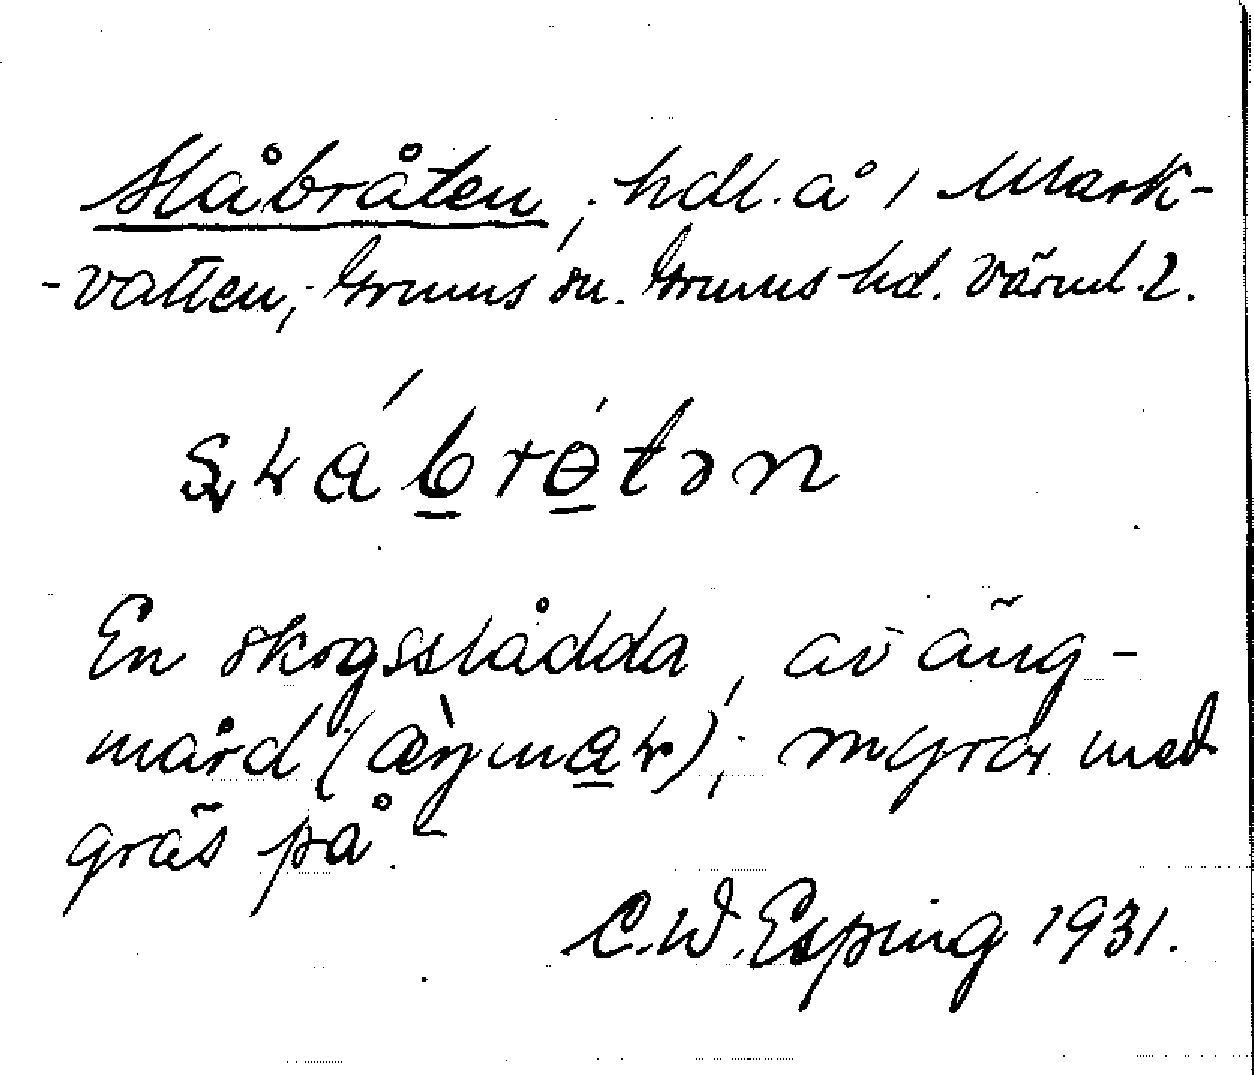 Slåbråten, hdl. å i Mark-
-vatten, Grums sn. Grums hd. Värml. l.
En skogsslådda, av äng-
mård (æŋmaɽ), myrar med
gräs på.
C.W. Esping 1931.